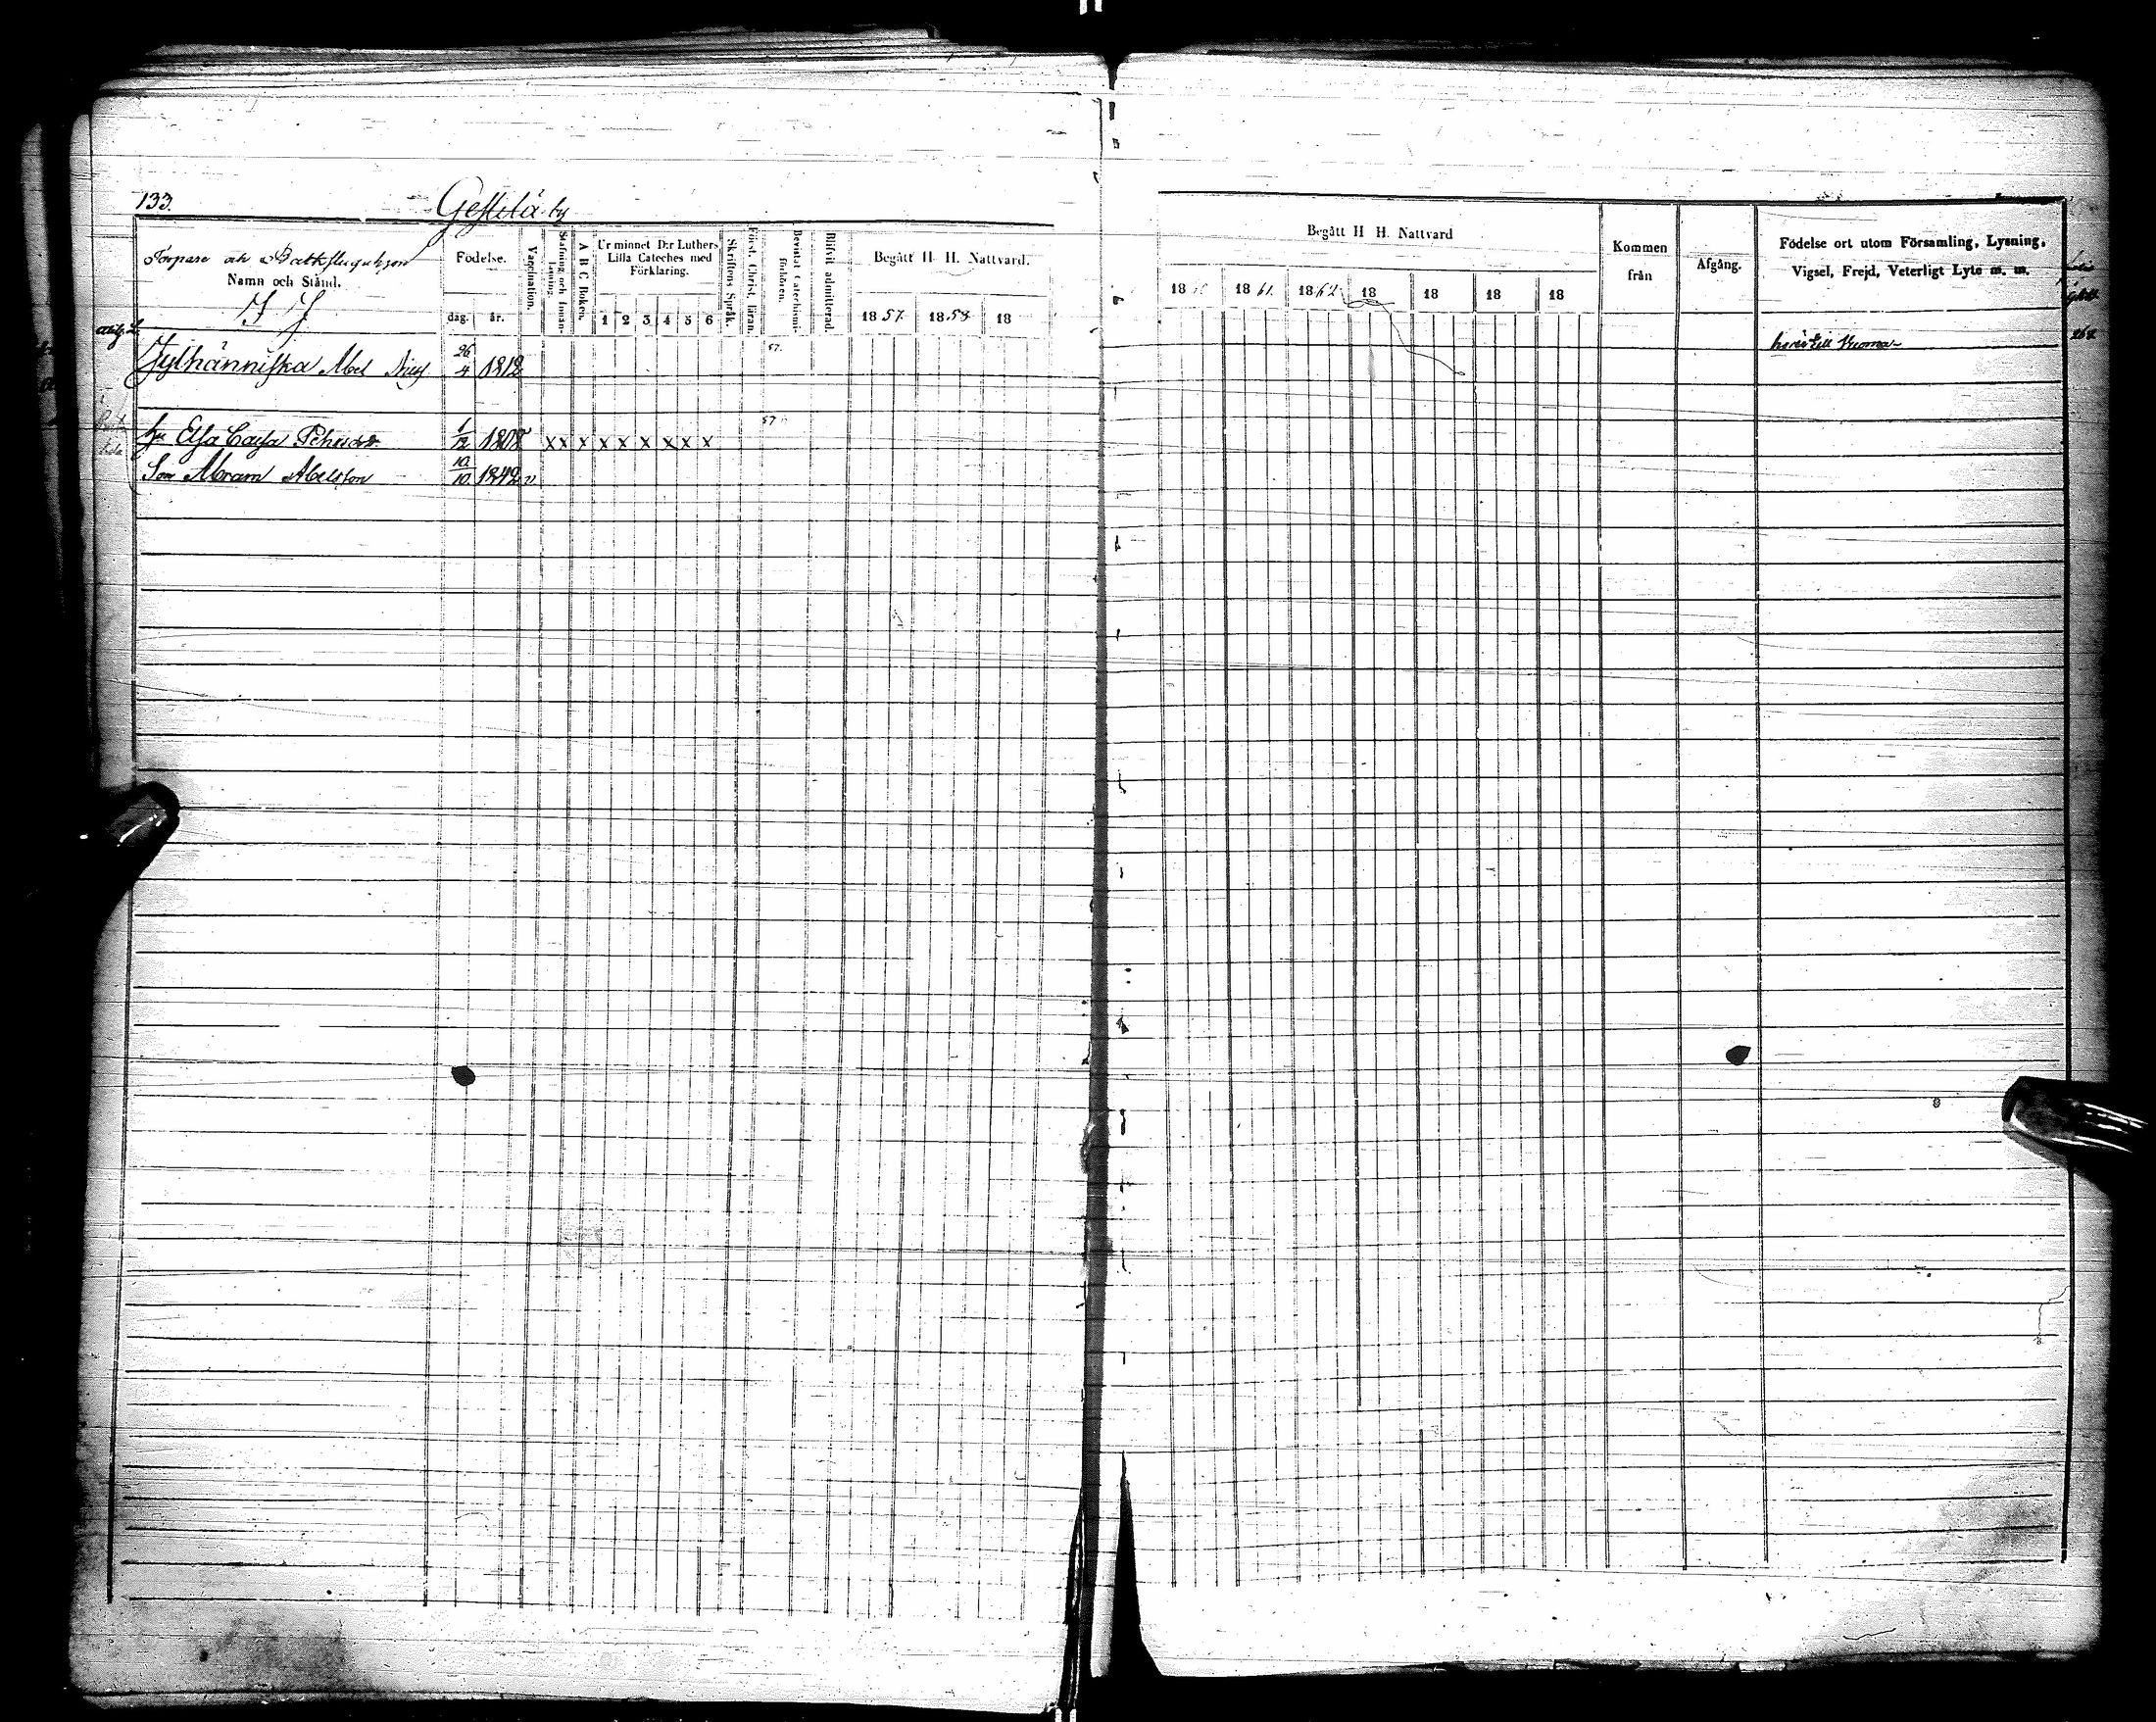 133. Gestilä by
Torpare och Backstuguhjon
Namn och Stånd.
Födelse.
dag. år.
Vaccination.
Stafning och Innan-läsning.
A B C Boken.
Ur minnet D:r Luthers
Lilla Cateches med
Förklaring.
1 2 3 4 5 6
Skriftens Språk.
Först. Christ. läran.
Bevistat Catechismi-förhören.
Blifvit admitterad.
Begått H H. Nattvard.
1857. 1858. 18
J J
Jylhänniska Abel 26/4 1812 57.
hu Elsa Cajsa Pehrsdr 1/12 1808 x x x x x x x x x 57
Son Abram Abelsson 10/10 1842 v
Begått H H. Nattvard
18 1861. 1862 18 18 18 18
Kommen
från
Afgång.
Födelse ort utom Församling, Lysning,
Vigsel, Frejd, Veterligt Lyte m. m.
hörer till